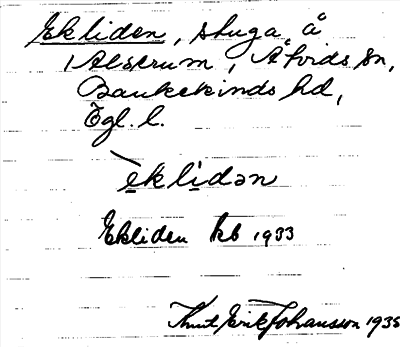 Ekliden, stuga å
Alserum, Åtvids sn,
Bankekinds hd,
Ögl. l.
èklidən
Ekliden kb 1933
Knut Erik Johansson 1935